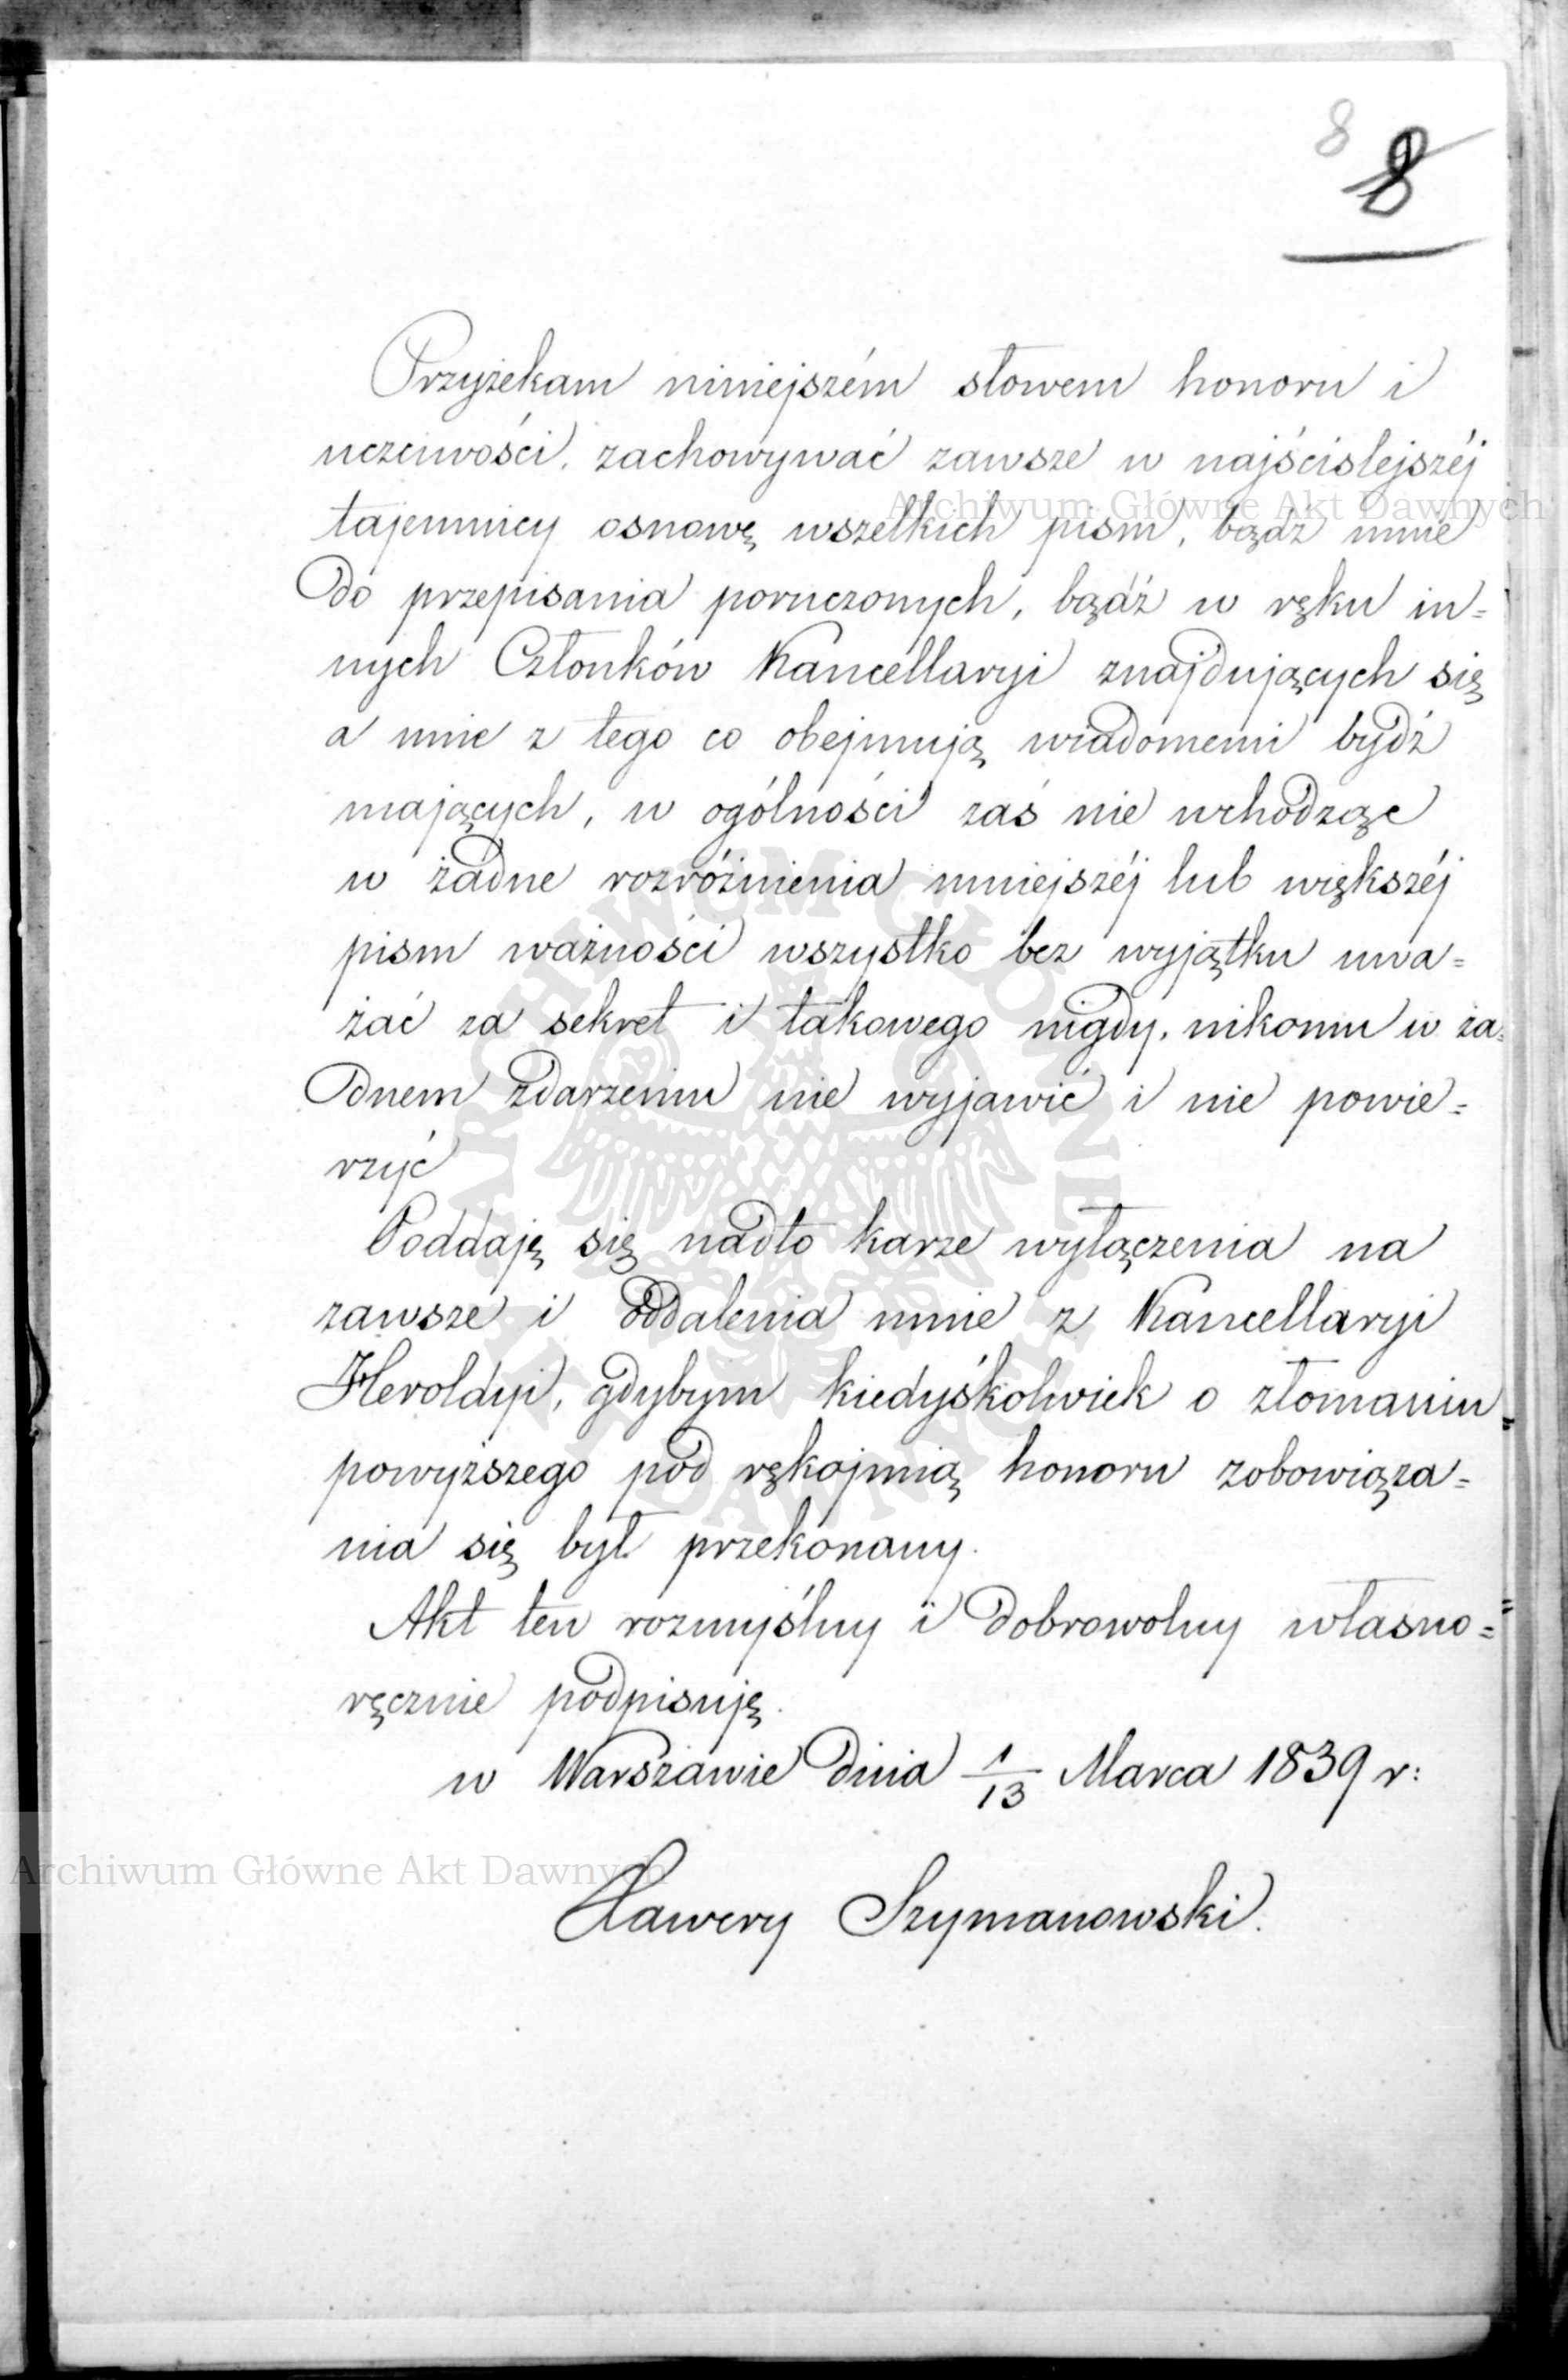 8
8
Przyżekam niniejszém słowem honoru i
uczciwości, zachowywać zawsze w najściślejszéj
Archiwum Główne Akt Dawnych
tajemnicy osnowę wszelkich pism, bądź mnie
do przepisania poruczonych, bądź w ręku in=
nych Członków Kancellaryi znajdujących się
a mnie z tego co obejmują wiadomemi bydź
mających, w ogólności zaś nie wchodząc
w żadne rozróżnienia mniejszéj lub większéj
pism ważności wszystko bez wyjątku uwa=
żać za sekret i takowego nigdy, nikomu w ża=
dnem zdarzeniu nie wyjawić i nie powie=
rzyć
Poddaję się nadto karze wyłączenia na
zawsze i oddalenia mnie z Kancellaryi
Heroldyi, gdybym kiedyśkolwiek o złomaniu
powyższego pod rękojmią honoru zobowiąza=
nia się był przekonany.
Akt ten rozmyślny i dobrowolny własno=
ręcznie podpisuję.
w Warszawie dnia 1/13 Marca 1839 r:
Archiwum Główne Akt Dawnych
Xawery Szymanowski.
ARCHIWUM GŁÓWNE
AKT DAWNYCH